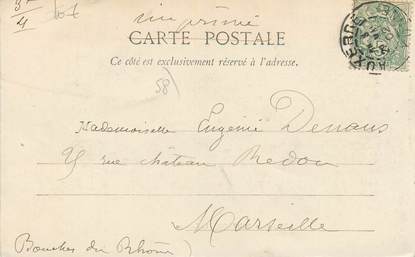 3-/4
imprimé
CARTE POSTALE
Ce côté est exclusivement réservé à l'adresse.
58)
Mademoiselle Eugénie Denans
rue château Redon
Marseille
(Bouches du Rhône)
AUXERRE